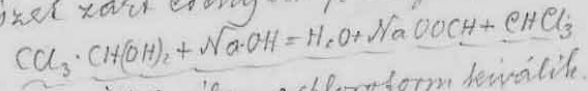 zárt
CCl₃·CH(OH)₂ + Na·OH = H₂O + NaOOCH + CHCl₃
chloroform kiválik.